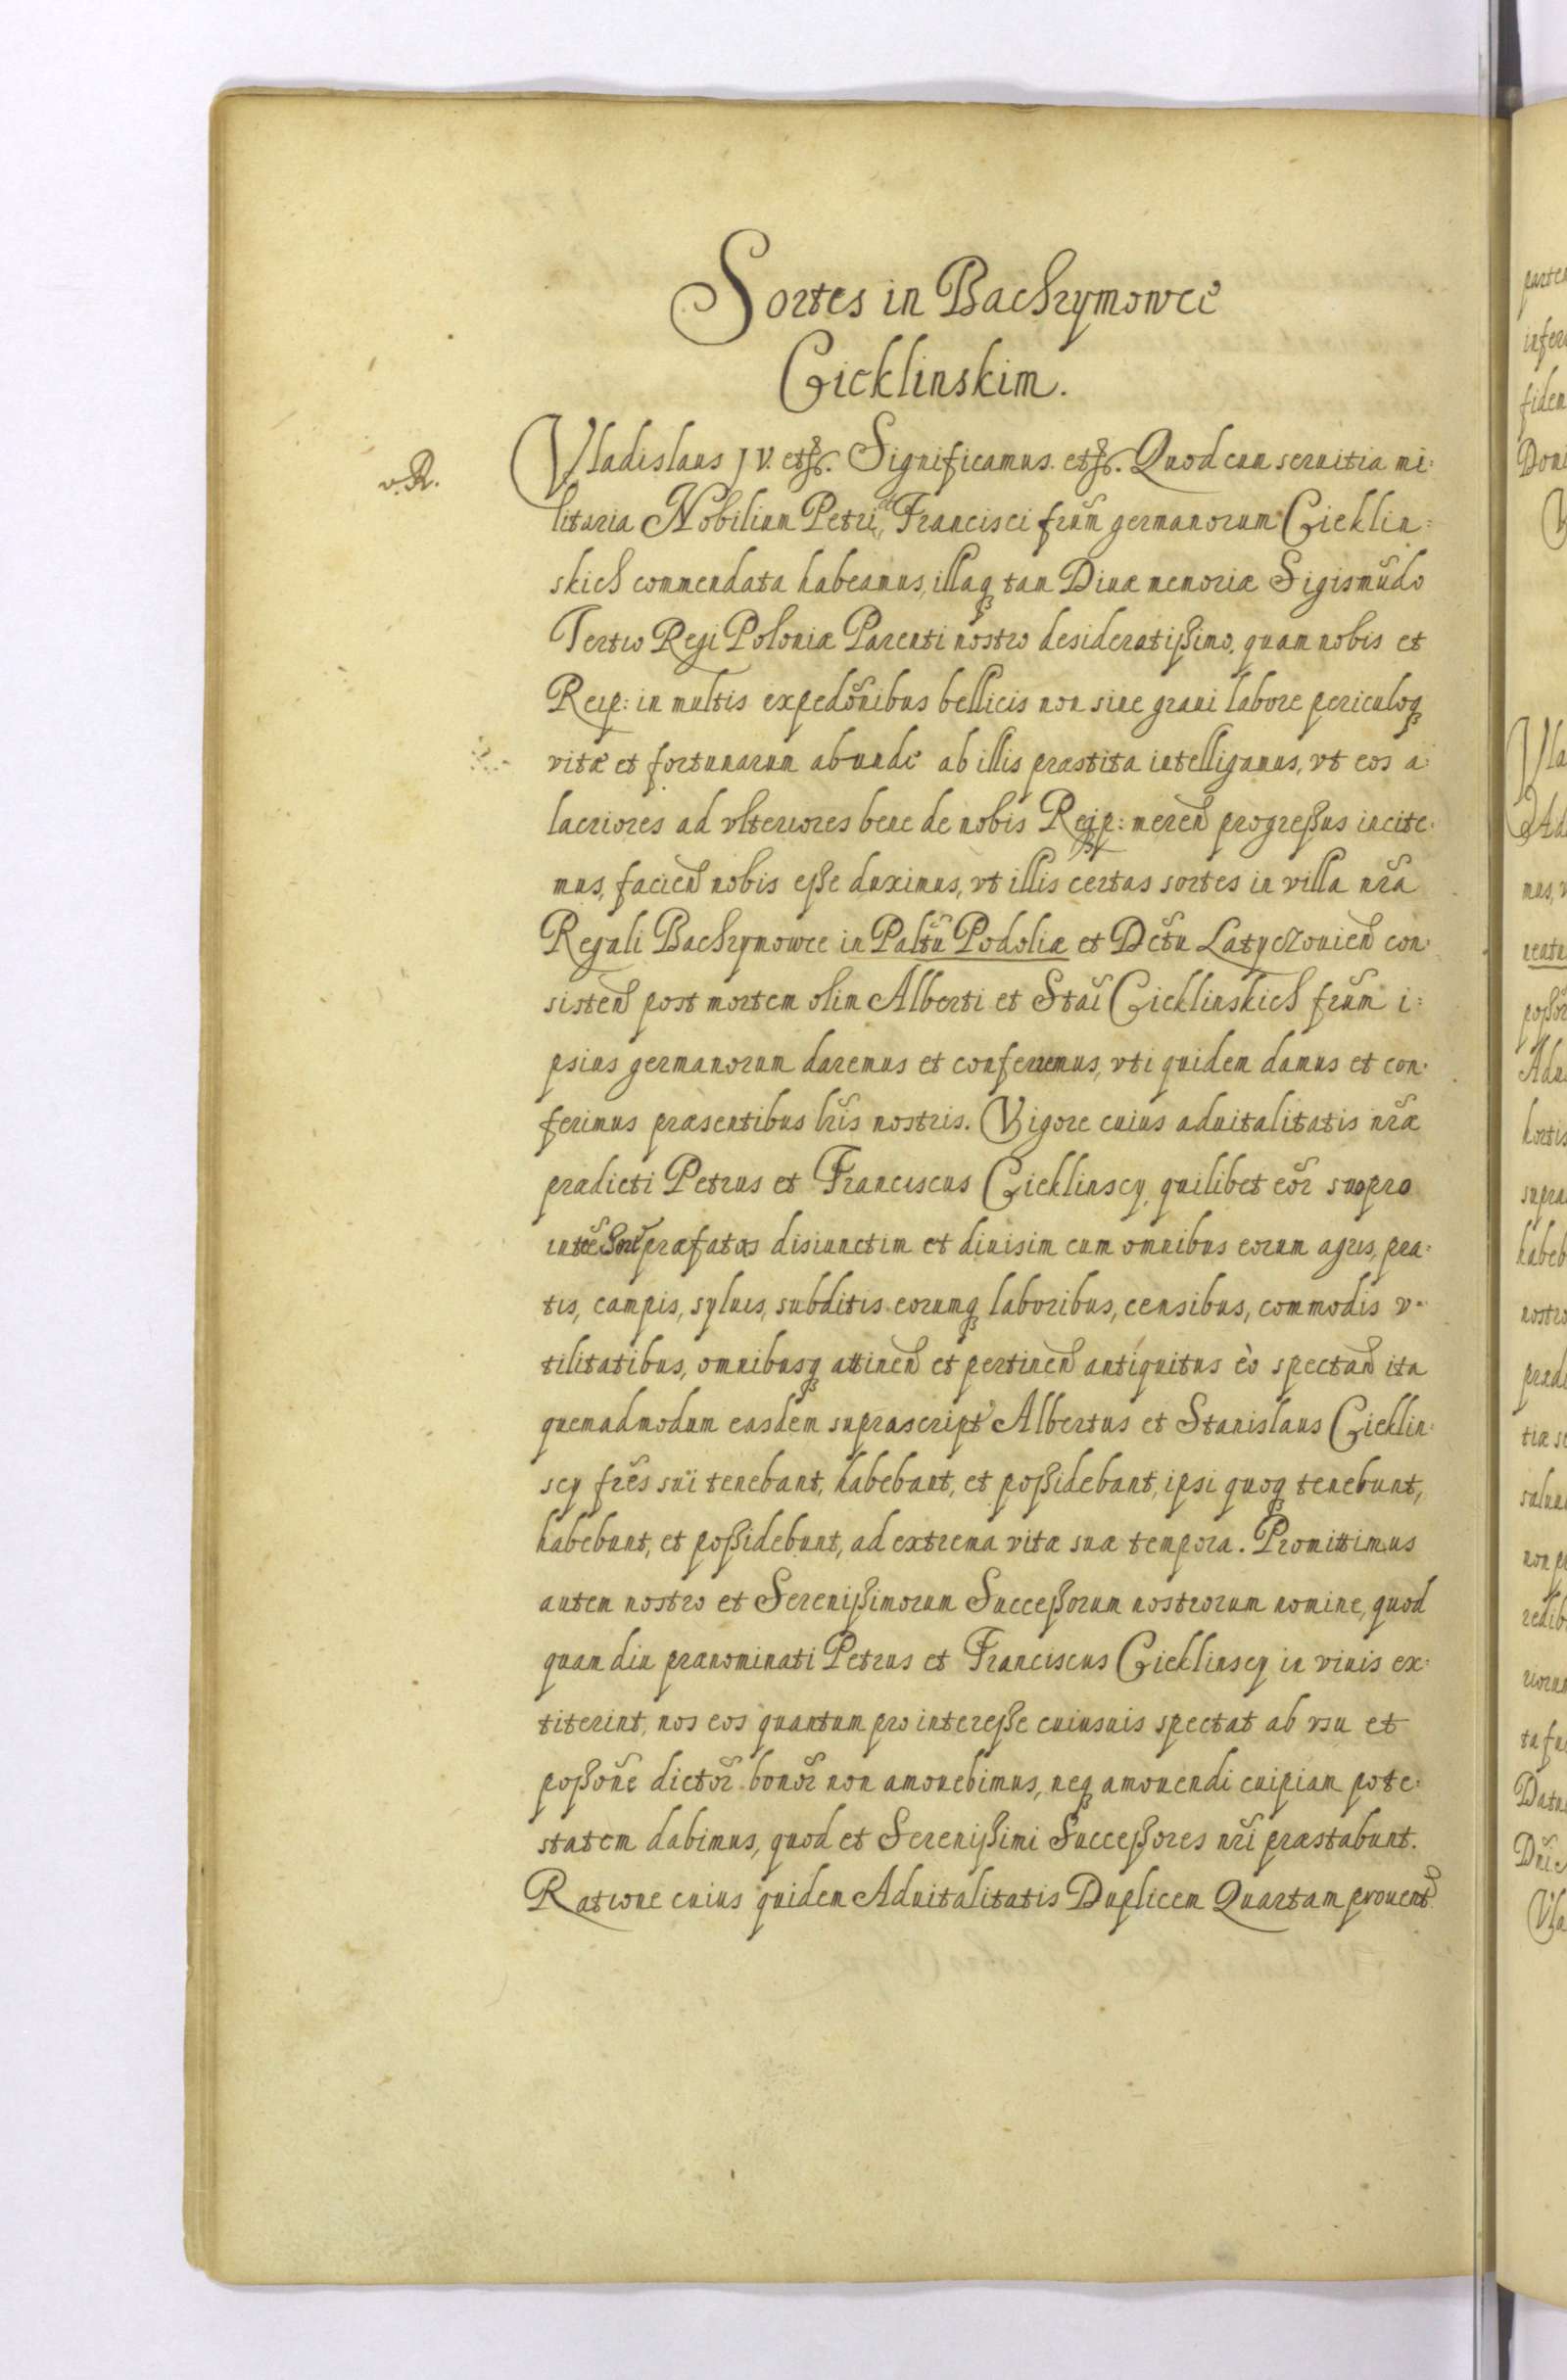 Sortes in Bachrymowce
Cicklinskim.
v. R.
Vladislaus IV. etc. Significamus. etc. Quod cum seruitia mi:
litaria Nobilium Petri et Francisci frūm germanorum Cicklin:
skich commendata habeamus, illaq tam Diuæ memoriæ Sigismūdo
Tertio Regi Poloniæ Parenti nostro desideratißimo, quam nobis et
Reip: in multis expedōnibus bellicis non sine graui labore periculoq
vitæ et fortunarum abunde ab illis præstita intelligamus, vt eos a:
lacriores ad vlteriores bene de nobis Reip: meren progreßus incite:
mus, facien nobis eße duximus, vt illis certas sortes in villa nrā
Regali Bachrymowce in Paltū Podoliæ et Dctū Latyczouien con:
sisten post mortem olim Alberti et Staī Cicklinskich frūm i:
psius germanorum daremus et conferremus, vti quidem damus et con:
ferimus præsentibus lrīs nostris. Vigore cuius aduitalitatis nrǣ
prædicti Petrus et Franciscus Cicklinscy, quilibet eōr suo pro
præfatas disiunctim et diuisim cum omnibus eorum agris, pra:
tis, campis, syluis, subditis eorumq laboribus, censibus, commodis v:
tilitatibus, omnibusq attinen et pertinen antiquitus eò spectan ita
quemadmodum easdem suprascript Albertus et Stanislaus Cicklin:
scy frēs suī tenebant, habebant, et poßidebant, ipsi quoq tenebunt,
habebunt, et poßidebunt, ad extrema vitæ suæ tempora. Promittimus
autem nostro et Serenißimorum Succeßorum nostrorum nomine, quod
quam diu prænominati Petrus et Franciscus Cicklinscy in viuis ex:
titerint, nos eos quantum pro intereße cuiusuis spectat ab vsu et
poßōne dictōr bonōr non amouebimus, neq amouendi cuipiam pote:
statem dabimus, quod et Serenißimi Succeßores nrī præstabunt.
Ratione cuius quidem Aduitalitatis Duplicem Quartam prouent